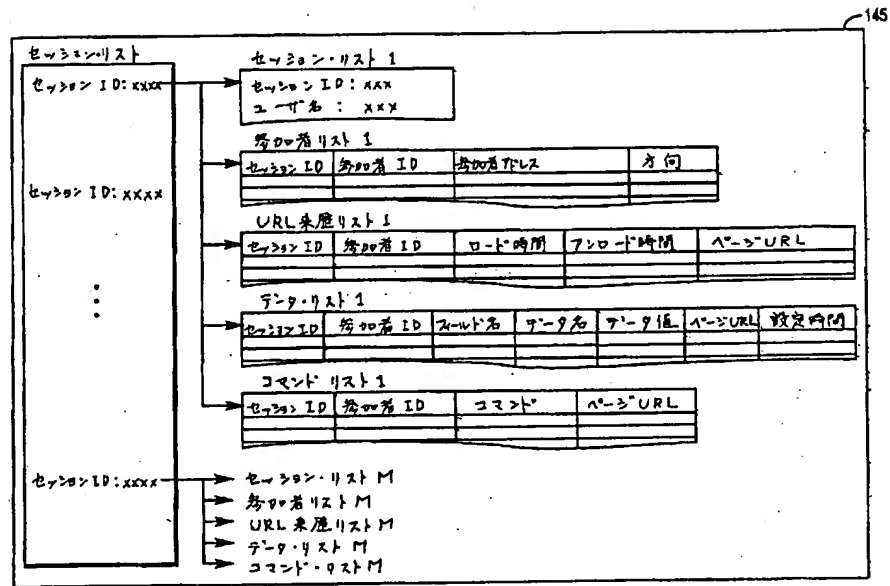 145
セッション・リスト
セッション ID: xxxx
セッション ID: xxxx
セッション ID: xxxx
セッション・リスト 1
セッション ID: xxx
ユーザ名 : xxx
参加者リスト 1
セッション ID 参加者 ID 参加者アドレス 方向
URL来歴リスト 1
セッション ID 参加者 ID ロード時間 アンロード時間 ページURL
データ・リスト 1
セッション ID 参加者 ID フィールド名 データ名 データ値 ページURL 設定時間
コマンド リスト 1
セッション ID 参加者 ID コマンド ページURL
セッション・リスト M
参加者リスト M
URL来歴リスト M
データ・リスト M
コマンド・リスト M